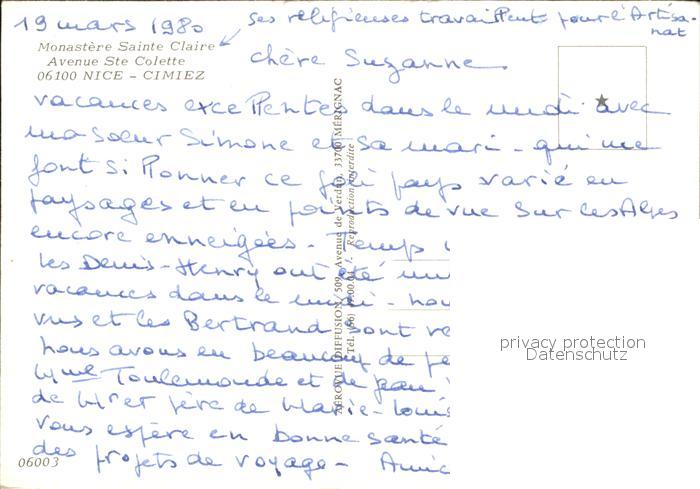 19 mars 1980
ses religieuses travaillent pour l'Artisa-
nat
Monastère Sainte Claire
Avenue Ste Colette
06100 NICE - CIMIEZ
chère Suzanne
vacances excellentes dans le midi avec
ma soeur Simone et sa mari - qui me
font sillonner ce joli pays varié en
paysages et en points de vue sur les Alpes
encore enneigées - Temps
les Denis-Henry ont été
vacances dans le midi -
vus et les Bertrand sont
nous avons eu beaucoup de
Mme Toulemonde et de Jean
de Mr et père de Marie-Louis
vous espère en bonne santé
des projets de voyage - Amic
06003
AÉROVUE DIFFUSION 509, Avenue de Verdun, 33700 MÉRIGNAC
Reproduction interdite
privacy protection
Datenschutz